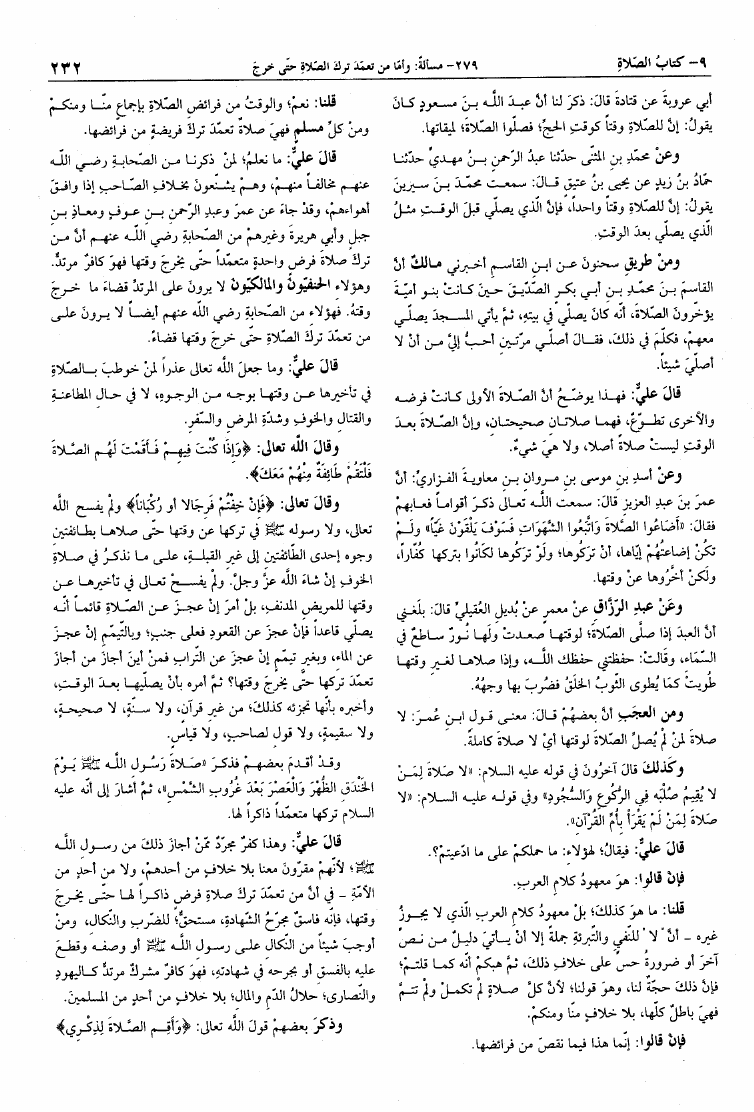 ٩- كتابُ الصَّلاةِ
٢٧٩- مسألةٌ: وأمّا من تعمَّدَ تركَ الصَّلاةِ حتَّى خرجَ
٢٣٢
أبي عروبةَ عن قتادةَ قالَ: ذكرَ لنا أنَّ عبدَ اللَّهِ بنَ مسعودٍ كانَ
يقولُ: إنَّ للصَّلاةِ وقتاً كوقتِ الحجِّ؛ فصلُّوا الصَّلاةَ؛ لميقاتها.
وعنْ محمَّدِ بنِ المثنَّى حدَّثنا عبدُ الرَّحمنِ بنُ مهديٍّ حدَّثنا
حمَّادُ بنُ زيدٍ عن يحيى بنُ عتيقٍ قالَ: سمعتُ محمَّدَ بنَ سيرينَ
يقولُ: إنَّ للصَّلاةِ وقتاً واحداً، فإنَّ الَّذي يصلِّي قبلَ الوقتِ مثلُ
الَّذي يصلِّي بعدَ الوقتِ.
ومنْ طريقِ سحنونَ عنِ ابنِ القاسمِ أخبرني مالكٌ أنَّ
القاسمَ بنَ محمَّدِ بنِ أبي بكرٍ الصِّدِّيقِ حينَ كانتْ بنو أميَّةَ
يؤخِّرونَ الصَّلاةَ، أنَّهُ كانَ يصلِّي في بيتهِ، ثمَّ يأتي المسجدَ يصلِّي
معهمْ، فكلِّمَ في ذلكَ، فقالَ أصلِّي مرَّتينِ أحبُّ إليَّ منْ أنْ لا
أصلِّيَ شيئاً.
قالَ عليٌّ: فهذا يوضِّحُ أنَّ الصَّلاةَ الأولى كانتْ فرضهُ
والأخرى تطوُّعٌ، فهما صلاتانِ صحيحتانِ، وإنَّ الصَّلاةَ بعدَ
الوقتِ ليستْ صلاةً أصلا، ولا هيَ شيءٌ.
وعنْ أسدِ بنِ موسى بنِ مروانَ بنِ معاويةَ الفزاريِّ: أنَّ
عمرَ بنَ عبدِ العزيزِ قالَ: سمعتُ اللَّهَ تعالى ذكرَ أقواماً فعابهمْ
فقالَ: «أَضَاعُوا الصَّلاةَ وَاتَّبَعُوا الشَّهَوَاتِ فَسَوْفَ يَلْقَوْنَ غَيًّا» ولَمْ
تكُنْ إضاعتُهُمْ إيَّاها، أنْ تركُوها؛ ولَوْ تركُوها لكَانُوا بتركها كُفَّاراً،
ولَكنْ أخَّرُوها عنْ وقتها.
وعَنْ عبدِ الرَّزَّاقِ عنْ معمرٍ عنْ بُديلٍ العُقيليِّ قالَ: بلَغني
أنَّ العبدَ إذا صلَّى الصَّلاةَ؛ لوقتها صعدتْ ولَها نُورٌ ساطعٌ في
السَّماءِ، وقَالتْ: حفظتني حفظكَ اللَّه، وإذا صلاها لغيرِ وقتها
طُويتْ كمَا يُطوى الثَّوبُ الخَلَقُ فضُربَ بها وجهُهُ.
ومنَ العجَبِ أنَّ بعضهُمْ قالَ: معنى قولِ ابنِ عُمرَ: لا
صلاةَ لمنْ لَمْ يُصلِّ الصَّلاةَ لوقتها أيْ لا صلاةَ كاملةً.
وكَذلكَ قالَ آخرُونَ في قولهِ عليهِ السلام: «لا صَلاةَ لِمَنْ
لا يُقِيمُ صُلْبَهُ فِي الرُّكُوعِ وَالسُّجُودِ» وفي قولهِ عليهِ السلام: «لا
صَلاةَ لِمَنْ لَمْ يَقْرَأْ بِأُمِّ القُرْآنِ».
قالَ عليٌّ: فيقالُ؛ لهؤلاءِ: ما حملكمْ على ما ادَّعيتمْ؟.
فإنْ قالوا: هوَ معهودُ كلامِ العربِ.
قلنا: ما هوَ كذلكَ؛ بلْ معهودُ كلامِ العربِ الَّذي لا يجوزُ
غيره - أنَّ "لا" للنَّفيِ والتَّبرئةِ جملةً إلا أنْ يأتيَ دليلٌ منْ نصٍّ
آخرَ أو ضرورةُ حسٍّ على خلافِ ذلكَ، ثمَّ هبكمْ أنَّه كما قلتمْ؛
فإنَّ ذلكَ حجَّةٌ لنا، وهوَ قولنا؛ لأنَّ كلَّ صلاةٍ لمْ تكملْ ولمْ تتمَّ
فهيَ باطلٌ كلُّها، بلا خلافٍ منَّا ومنكمْ.
فإنْ قالوا: إنَّما هذا فيما نقصَ من فرائضها.
قلنا: نعمْ؛ والوقتُ من فرائضِ الصَّلاةِ بإجماعٍ منَّا ومنكمْ
ومنْ كلِّ مسلمٍ فهيَ صلاةٌ تعمَّدَ تركَ فريضةٍ من فرائضها.
قالَ عليٌّ: ما نعلمُ؛ لمنْ ذكرنا منَ الصَّحابةِ رضي اللَّه
عنهم مخالفاً منهمْ، وهمْ يشنِّعونَ بخلافِ الصَّاحبِ إذا وافقَ
أهواءهمْ، وقدْ جاءَ عن عمرَ وعبدِ الرَّحمنِ بنِ عوفٍ ومعاذِ بنِ
جبلٍ وأبي هريرةَ وغيرهمْ من الصَّحابةِ رضي اللَّه عنهم أنَّ منْ
تركَ صلاةَ فرضٍ واحدةٍ متعمِّداً حتَّى يخرجَ وقتها فهوَ كافرٌ مرتدٌّ.
وهؤلاءِ الحنفيُّونَ والمالكيُّونَ لا يرونَ على المرتدِّ قضاءَ ما خرجَ
وقتهُ. فهؤلاءِ من الصَّحابةِ رضي اللَّه عنهم أيضاً لا يرونَ على
من تعمَّدَ تركَ الصَّلاةِ حتَّى خرجَ وقتها قضاءً.
قالَ عليٌّ: وما جعلَ اللَّه تعالى عذراً لمنْ خوطبَ بالصَّلاةِ
في تأخيرها عن وقتها بوجهٍ من الوجوهِ، لا في حالِ المطاعنةِ
والقتالِ والخوفِ وشدَّةِ المرضِ والسَّفرِ.
وقالَ اللَّه تعالى: ﴿وَإِذَا كُنْتَ فِيهِمْ فَأَقَمْتَ لَهُمِ الصَّلاةَ
فَلْتَقُمْ طَائِفَةٌ مِنْهُمْ مَعَكَ﴾.
وقالَ تعالى: ﴿فَإِنْ خِفْتُمْ فَرِجَالا أو رُكْبَاناً﴾ ولمْ يفسحِ اللَّه
تعالى، ولا رسوله ﷺ في تركها عن وقتها حتَّى صلاها بطائفتينِ
وجوه إحدى الطَّائفتينِ إلى غيرِ القبلةِ، على ما نذكرُ في صلاةِ
الخوفِ إنْ شاءَ اللَّه عزَّ وجلَّ. ولمْ يفسحْ تعالى في تأخيرها عن
وقتها للمريضِ المدنفِ، بلْ أمرَ إنْ عجزَ عنِ الصَّلاةِ قائماً أنَّه
يصلِّي قاعداً فإنْ عجزَ عن القعودِ فعلى جنبٍ؛ وبالتَّيمُّمِ إنْ عجزَ
عن الماءِ، وبغيرِ تيمُّمٍ إنْ عجزَ عن التُّرابِ فمنْ أينَ أجازَ من أجازَ
تعمُّدَ تركها حتَّى يخرجَ وقتها؟ ثمَّ أمره بأنْ يصلِّيها بعدَ الوقتِ،
وأخبره بأنَّها تجزئه كذلكَ؛ من غيرِ قرآنٍ، ولا سنَّةٍ، لا صحيحةٍ،
ولا سقيمةٍ، ولا قولٍ لصاحبٍ، ولا قياسٍ.
وقدْ أقدمَ بعضهمْ فذكرَ «صَلاةَ رَسُولِ اللَّهِ ﷺ يَوْمَ
الخَنْدَقِ الظُّهْرَ وَالعَصْرَ بَعْدَ غُرُوبِ الشَّمْسِ»، ثمَّ أشارَ إلى أنَّه عليهِ
السلام تركها متعمِّداً ذاكراً لها.
قالَ عليٌّ: وهذا كفرٌ مجرَّدٌ ممَّنْ أجازَ ذلكَ من رسولِ اللَّه
ﷺ؛ لأنَّهمْ مقرُّونَ معنا بلا خلافٍ من أحدهمْ، ولا من أحدٍ من
الأمَّةِ - في أنَّ من تعمَّدَ تركَ صلاةٍ فرضٍ ذاكراً لها حتَّى يخرجَ
وقتها، فإنَّه فاسقٌ مجرَّحُ الشَّهادةِ، مستحقٌّ؛ للضَّربِ والنَّكالِ، ومنْ
أوجبَ شيئاً من النَّكالِ على رسولِ اللَّه ﷺ أو وصفه وقطعَ
عليه بالفسقِ أو بجرحه في شهادتهِ، فهوَ كافرٌ مشركٌ مرتدٌّ كاليهودِ
والنَّصارى؛ حلالُ الدَّمِ والمالِ؛ بلا خلافٍ من أحدٍ من المسلمينَ.
وذكرَ بعضهمْ قولَ اللَّه تعالى: ﴿وَأَقِمِ الصَّلاةَ لِذِكْرِي﴾